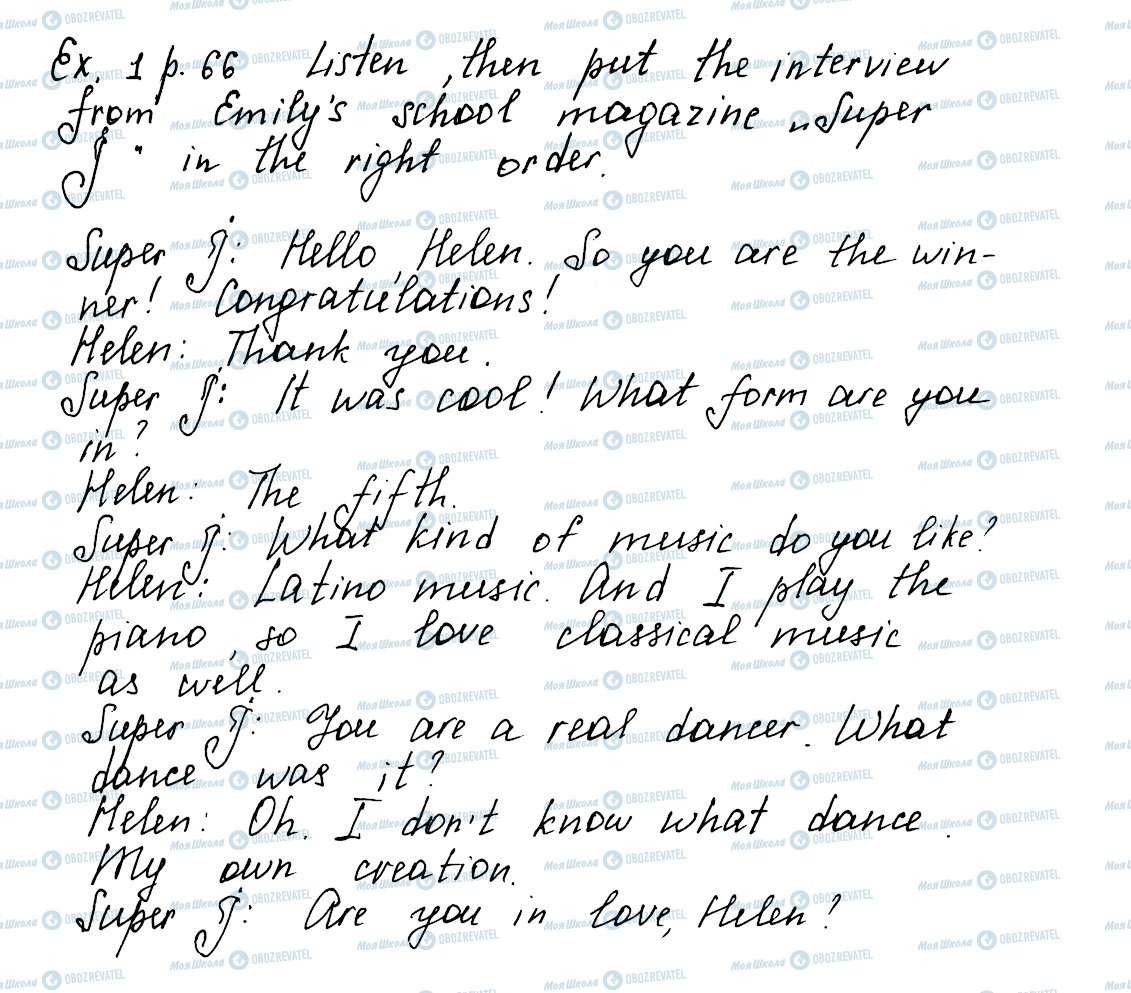 Ex. 1 p. 66 Listen, then put the interview
from Emily's school magazine „Super
J" in the right order.
Super J: Hello, Helen. So you are the win-
ner! Congratulations!
Helen: Thank you.
Super J: It was cool! What form are you
in?
Helen: The fifth.
Super J: What kind of music do you like?
Helen: Latino music. And I play the
piano, so I love classical music
as well.
Super J: You are a real dancer. What
dance was it?
Helen: Oh. I don't know what dance.
My own creation.
Super J: Are you in love, Helen?